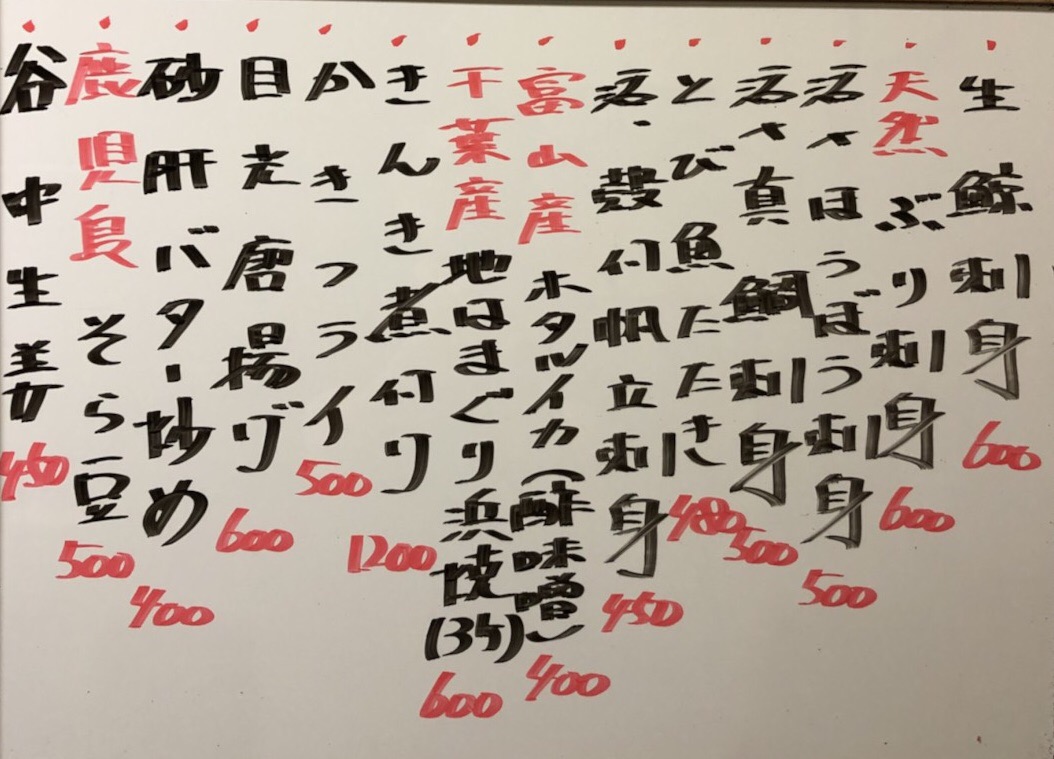 生鯨刺身 600
天然ぶり刺身 600
活〆ほうぼう刺身 500
活〆真鯛刺身 500
とび魚たたき 480
活、殻付帆立刺身 450
富山産ホタルイカ(酢味噌) 400
千葉産地はまぐり浜焼(3ケ) 600
きんき煮付け 1200
かきフライ 500
目光唐揚げ 600
砂肝バター炒め 400
鹿児島そら豆 500
谷中生姜 450